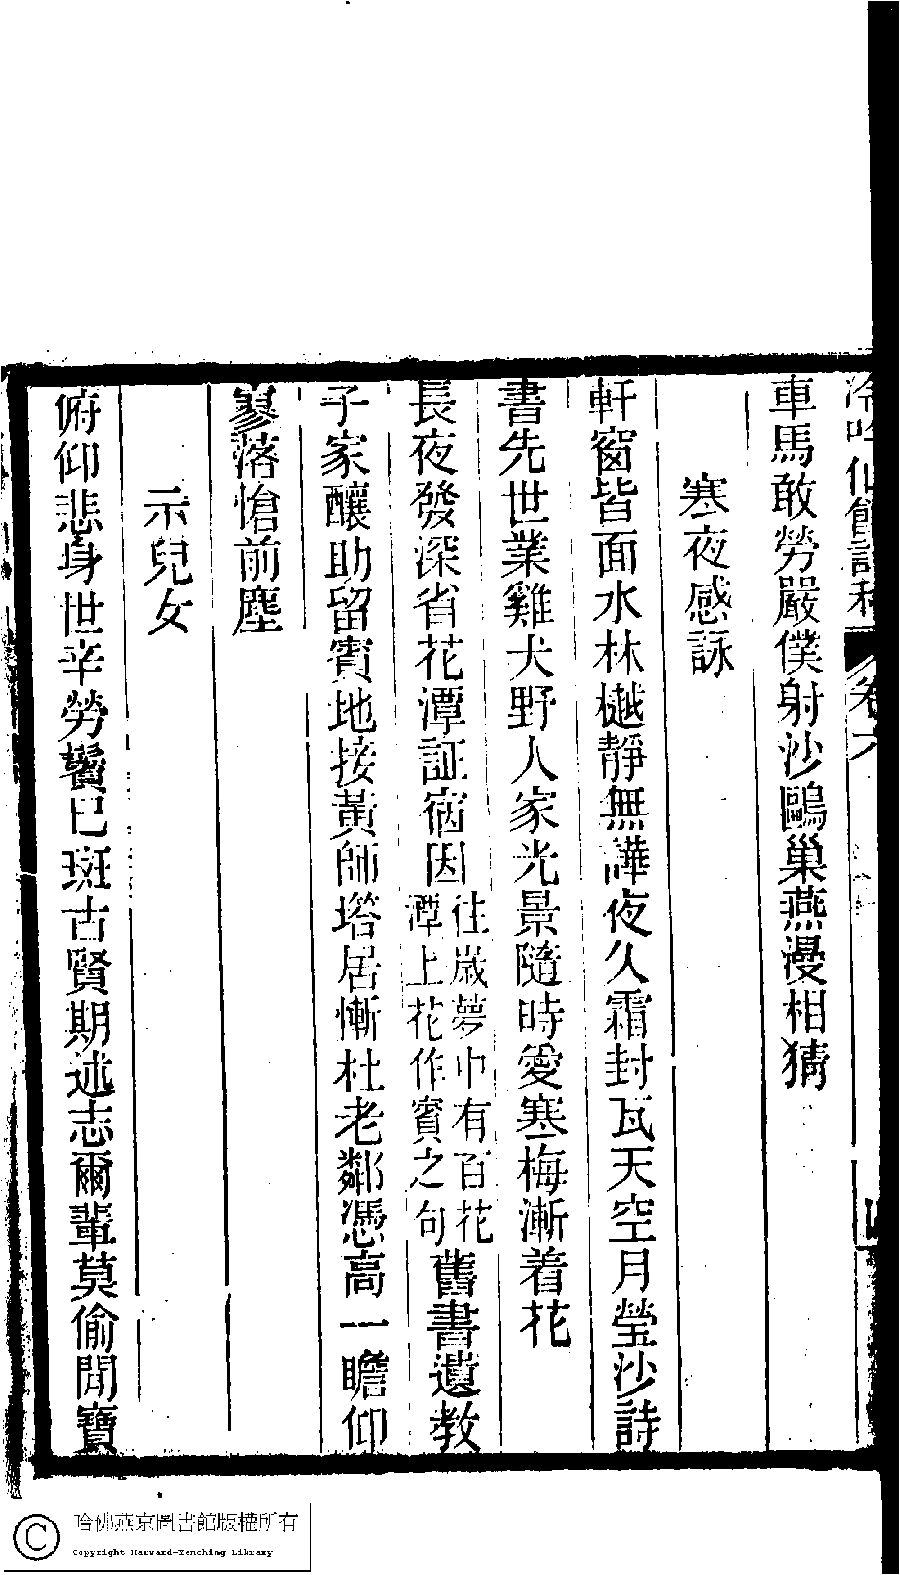 冷吟仙館詩稿 卷六
車馬敢勞嚴僕射沙鷗巢燕漫相猜
寒夜感詠
軒窗皆面水林樾靜無譁夜久霜封瓦天空月瑩沙詩
書先世業雞犬野人家光景隨時愛寒梅漸着花
長夜發深省花潭証宿因往歲夢中有百花潭上花作賓之句舊書遺教
子家釀助留賓地接黃師塔居慚杜老鄰憑高一瞻仰
寥落愴前塵
示兒女
俯仰悲身世辛勞鬢已斑古賢期述志爾輩莫偷閒寶
哈佛燕京圖書館版權所有
Copyright Harvard-Yenching Library